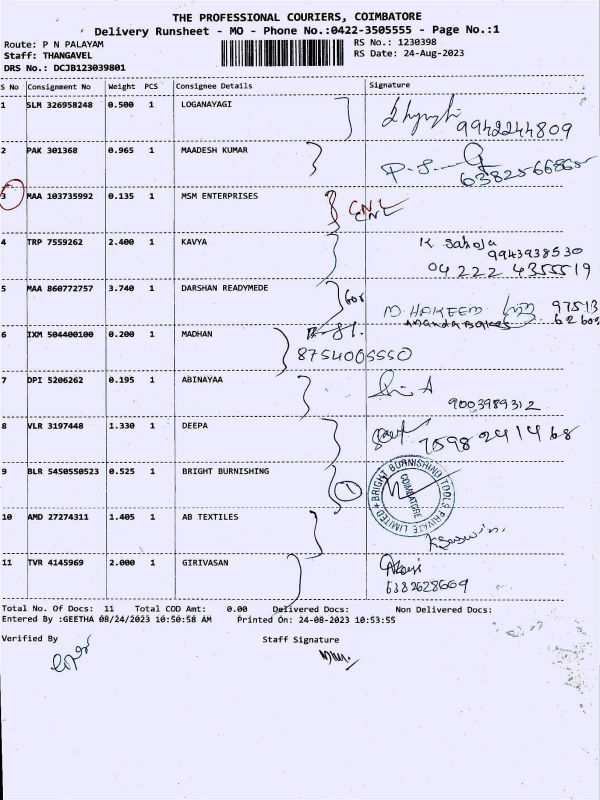 THE PROFESSIONAL COURIERS, COIMBATORE
Delivery Runsheet - MO - Phone No.:0422-3505555 - Page No.:1
Route: P N PALAYAM
RS No.: 1230398
Staff: THANGAVEL
RS Date: 24-Aug-2023
DRS No.: DCJB123039801
S No Consignment No Weight PCS Consignee Details Signature
1 SLM 326958248 0.500 1 LOGANAYAGI
9942244809
2 PAK 301368 0.965 1 MAADESH KUMAR
3 MAA 103735992 0.135 1 MSM ENTERPRISES
CNL
CNL
4 TRP 7559262 2.400 1 KAVYA
K Sahoja
9943938530
04222 4355519
5 MAA 860772757 3.740 1 DARSHAN READYMEDE
M. HAKEEM 97513
6 IXM 504400100 0.200 1 MADHAN
8754005550
7 DPI 5206262 0.195 1 ABINAYAA
9003989312
8 VLR 3197448 1.330 1 DEEPA
7598241468
9 BLR 5450550523 0.525 1 BRIGHT BURNISHING
1
BRIGHT BURNISHING TOOLS PRIVATE LIMITED
COIMBATORE
10 AMD 27274311 1.405 1 AB TEXTILES
11 TVR 4145969 2.000 1 GIRIVASAN
6382628669
Total No. Of Docs: 11 Total COD Amt: 0.00 Delivered Docs: Non Delivered Docs:
Entered By :GEETHA 08/24/2023 10:50:58 AM Printed On: 24-08-2023 10:53:55
Verified By Staff Signature